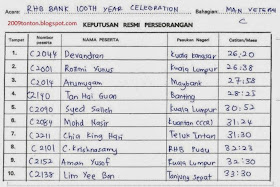 Acara: RHB BANK 100TH YEAR CELEBRATION Bahagian: MAN VETERAN
2009tonton.blogspot.com C
KEPUTUSAN RESMI PERSEORANGAN
Tempat Nombor peserta NAMA PESERTA Pasukan Negeri Catitan/Masa
1. C2044 Devandran Kuala Bangsar 26:20
2. C2001 Rozmi Yunus Kuala Lumpur 26:38
3. C2014 Arumugam Maybank 27:58
4. C2140 Tan Hai Guan Banting 28:25
5. C2090 Syed Salleh Kuala Lumpur 30:52
6. C2084 Mohd Nasir Kuantan 31:24
7. C2211 Chia King Hai Teluk Intan 31:30
8. C2101 C. Krishnasamy RHB Pudu 32:23
9. C2152 Aman Yusof Kuala Lumpur 32:30
10. C2138 Lim Yee Ban Tanjung Sepat 33:30